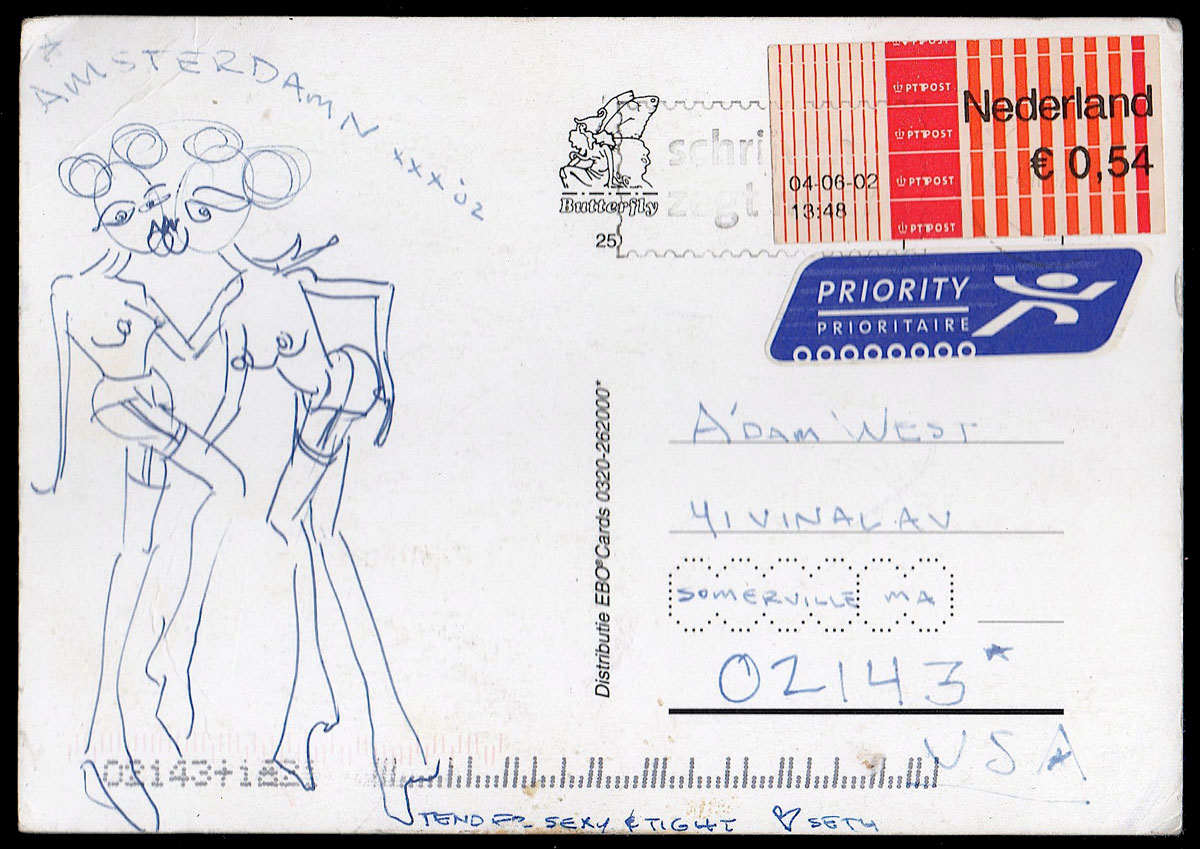 * AMSTERDAMN xxx '02
schri
zegt
Butterfly
25
PTT POST
PTT POST
PTT POST
PTT POST
PTT POST
Nederland
€ 0,54
04-06-02
13:48
PRIORITY
PRIORITAIRE
Distributie EBO® Cards 0320-262000*
A'DAM WEST
41 VINAL AV
SOMERVILLE MA
02143*
USA
TENDER SEXY & TIGHT ♡ SETH